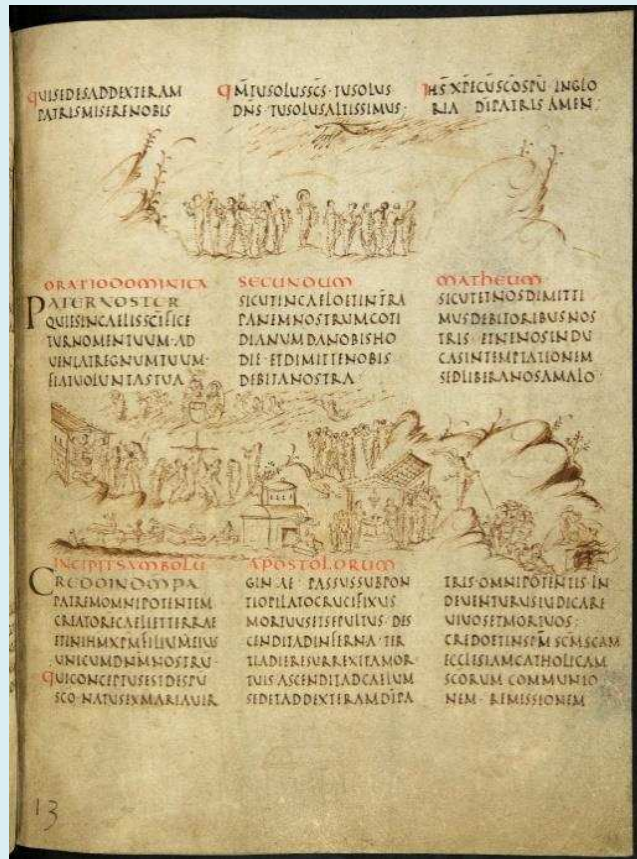 QUISEDESADDEXTERAM
PATRISMISERENOBIS
QM̄TUSOLUSSC̄S·TUSOLUS
DN̄S·TUSOLUSALTISSIMUS;
IHS̄XP̄ECUSC̄OSPŪ·INGLO
RIA DĪPATRIS AMEN;
ORATIODOMINICA
PATERNOSTER
QUIESINCAELISSC̄IFICE
TURNOMENTUUM·AD
UENIATREGNUMTUUM·
FIATUOLUNTASTUA
SECUNDUM
SICUTINCAELOETINT̄RA
PANEMNOSTRUMCOTI
DIANUMDANOBISHO
DIE·ETDIMITTENOBIS
DEBITANOSTRA·
MATHEUM
SICUTETNOSDIMITTI
MUSDEBITORIBUSNOS
TRIS·ETNENOSINDU
CASINTEMPTATIONEM
SEDLIBERANOSAMALO·
INCIPITSYMBOLŪ
CREDOINDM̄PA
PATREMOMNIPOTENTEM
CREATORĒCAELIETTERRAE
ETINIHM̄XPM̄FILIUM̄EIUS
UNICUMDN̄MNOSTRU·
QUICONCEPTUSESTDESPU
SCO·NATUSEXMARIAUIR
APOSTOLORUM
GINAE·PASSUSSUBPON
TIOPILATOCRUCIFIXUS
MORTUUSETSEPULTUS·DES
CENDITADINFERNA·TER
TIADIERESURREXITAMOR·
TUISASCENDITADCAELUM
SEDETADDEXTERAMDĪPA
TRIS·OMNIPOTENTIS·IN
DEVENTURUSIUDICARE
UIUOSETMORTUOS;
CREDOETINSPM̄SCM̄SCAM
ECCLESIAMCATHOLICAM
SCORUM COMMUNIO
NEM·REMISSIONEM
13